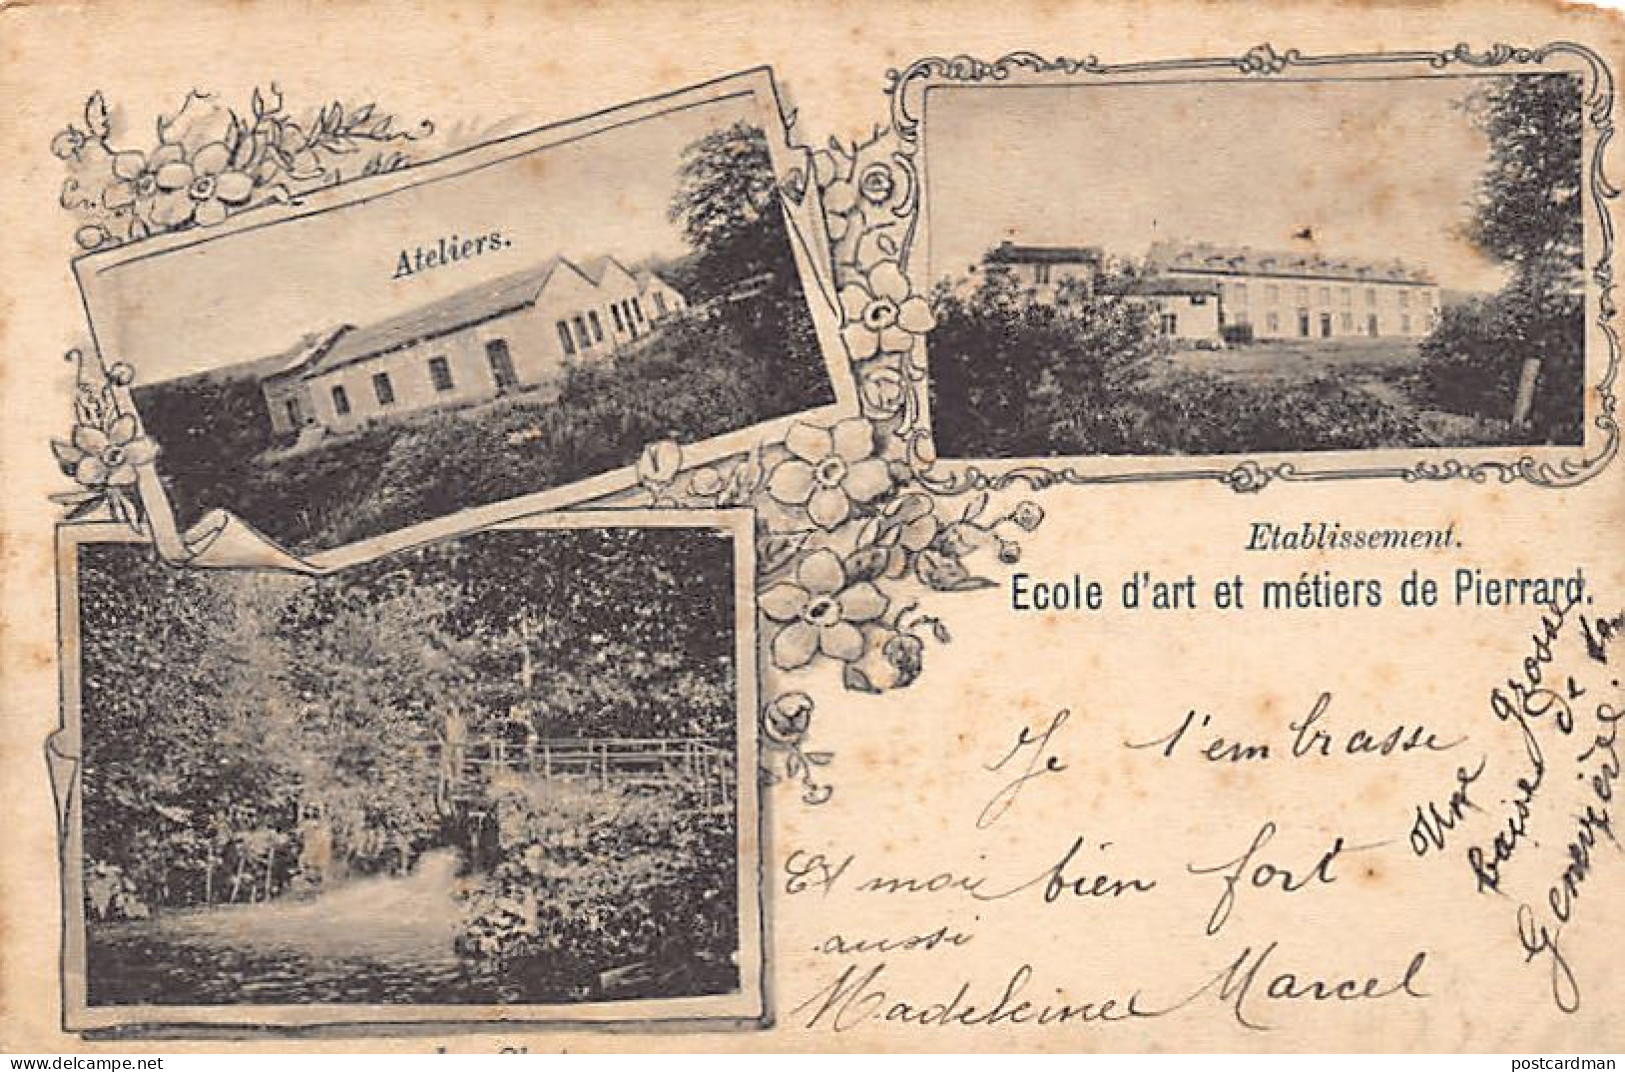 Ateliers.
Etablissement.
Ecole d'art et métiers de Pierrard.
Je t'embrasse
bien fort
Marcel
Et moi
aussi
Madeleine
Une grosse
baise de ta
Geneviève.
postcardman